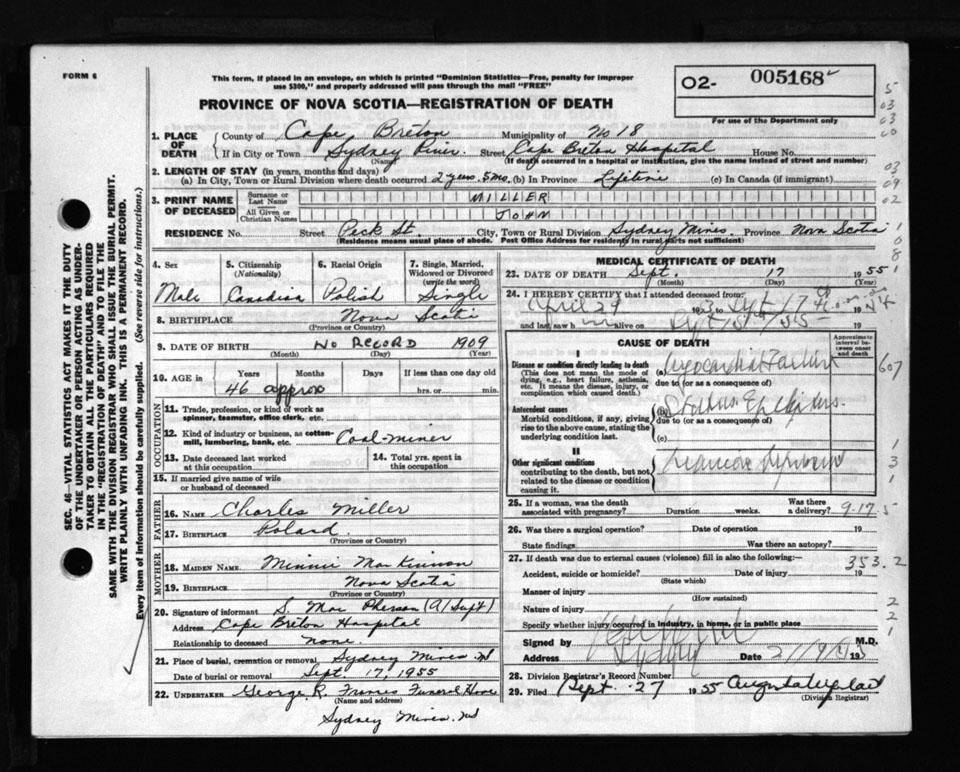 FORM 6
This form, if placed in an envelope, on which is printed "Dominion Statistics—Free, penalty for improper
use $300," and properly addressed will pass through the mail "FREE"
02- 005168
For use of the Department only
PROVINCE OF NOVA SCOTIA—REGISTRATION OF DEATH
SEC. 46—VITAL STATISTICS ACT MAKES IT THE DUTY
OF THE UNDERTAKER OR PERSON ACTING AS UNDER-
TAKER TO OBTAIN ALL THE PARTICULARS REQUIRED
IN THE "REGISTRATION OF DEATH" AND TO FILE THE
SAME WITH THE DIVISION REGISTRAR WHO SHALL ISSUE THE BURIAL PERMIT.
WRITE PLAINLY WITH UNFADING INK. THIS IS A PERMANENT RECORD.
Every item of information should be carefully supplied. (See reverse side for instructions.)
1. PLACE OF DEATH County of Cape Breton Municipality of No 18
If in City or Town Sydney River Street Cape Breton Hospital House No.
(Name) (If death occurred in a hospital or institution, give the name instead of street and number)
2. LENGTH OF STAY (in years, months and days)
(a) In City, Town or Rural Division where death occurred 2 years. 5 mo. (b) In Province Lifetime (c) In Canada (if immigrant)
3. PRINT NAME OF DECEASED Surname or Last Name MILLER
All Given or Christian Names JOHN
RESIDENCE No. Street Peck St. City, Town or Rural Division Sydney Mines Province Nova Scotia
(Residence means usual place of abode. Post Office Address for residents in rural parts not sufficient)
4. Sex 5. Citizenship (Nationality) 6. Racial Origin 7. Single, Married, Widowed or Divorced (write the word)
Male Canadian Polish Single
8. BIRTHPLACE Nova Scotia
(Province or Country)
9. DATE OF BIRTH No RECORD 1909
(Month) (Day) (Year)
10. AGE in Years Months Days If less than one day old
46 approx hrs. or min.
OCCUPATION
11. Trade, profession, or kind of work as spinner, teamster, office clerk, etc.
12. Kind of industry or business, as cotton-mill, lumbering, bank, etc. Coal-miner
13. Date deceased last worked at this occupation 14. Total yrs. spent in this occupation
15. If married give name of wife or husband of deceased
FATHER
16. Name Charles Miller
17. BIRTHPLACE Poland
(Province or Country)
MOTHER
18. MAIDEN NAME Minnie MacKinnon
19. BIRTHPLACE Nova Scotia
(Province or Country)
20. Signature of informant S. MacPherson (A/Supt)
Address Cape Breton Hospital
Relationship to deceased none.
21. Place of burial, cremation or removal Sydney Mines NS
Date of burial or removal Sept. 17, 1955
22. UNDERTAKER George R. Francis Funeral Home
(Name and address)
Sydney Mines. NS
MEDICAL CERTIFICATE OF DEATH
23. DATE OF DEATH Sept. 17 1955
(Month) (Day)
24. I HEREBY CERTIFY that I attended deceased from:
April 29 Sept 17
and last saw h alive on 19
CAUSE OF DEATH
Approximate interval between onset and death
I
Disease or condition directly leading to death
(This does not mean the mode of dying, e.g., heart failure, asthenia, etc. It means the disease, injury, or complication which caused death.)
(a) Myocardial Failure
due to (or as a consequence of)
Antecedent causes
Morbid conditions, if any, giving rise to the above cause, stating the underlying condition last.
(b) Status Epilepticus.
due to (or as a consequence of)
(c)
II
Other significant conditions
contributing to the death, but not related to the disease or condition causing it.
25. If a woman, was the death associated with pregnancy? Duration weeks. Was there a delivery? 9-17
26. Was there a surgical operation? Date of operation 19
State findings Was there an autopsy?
27. If death was due to external causes (violence) fill in also the following:— 353.2
Accident, suicide or homicide? Date of injury 19
(State which)
Manner of injury
(How sustained)
Nature of injury
Specify whether injury occurred in industry, in home, or in public place
Signed by M.D.
Address Sydney Date
28. Division Registrar's Record Number
29. Filed Sept. 27 1955
(Division Registrar)